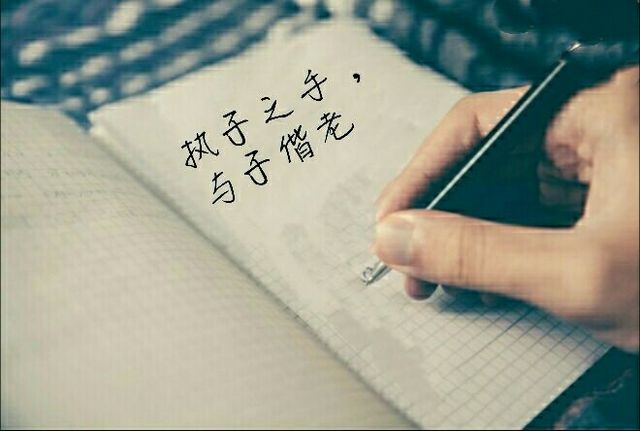 执子之手，
与子偕老